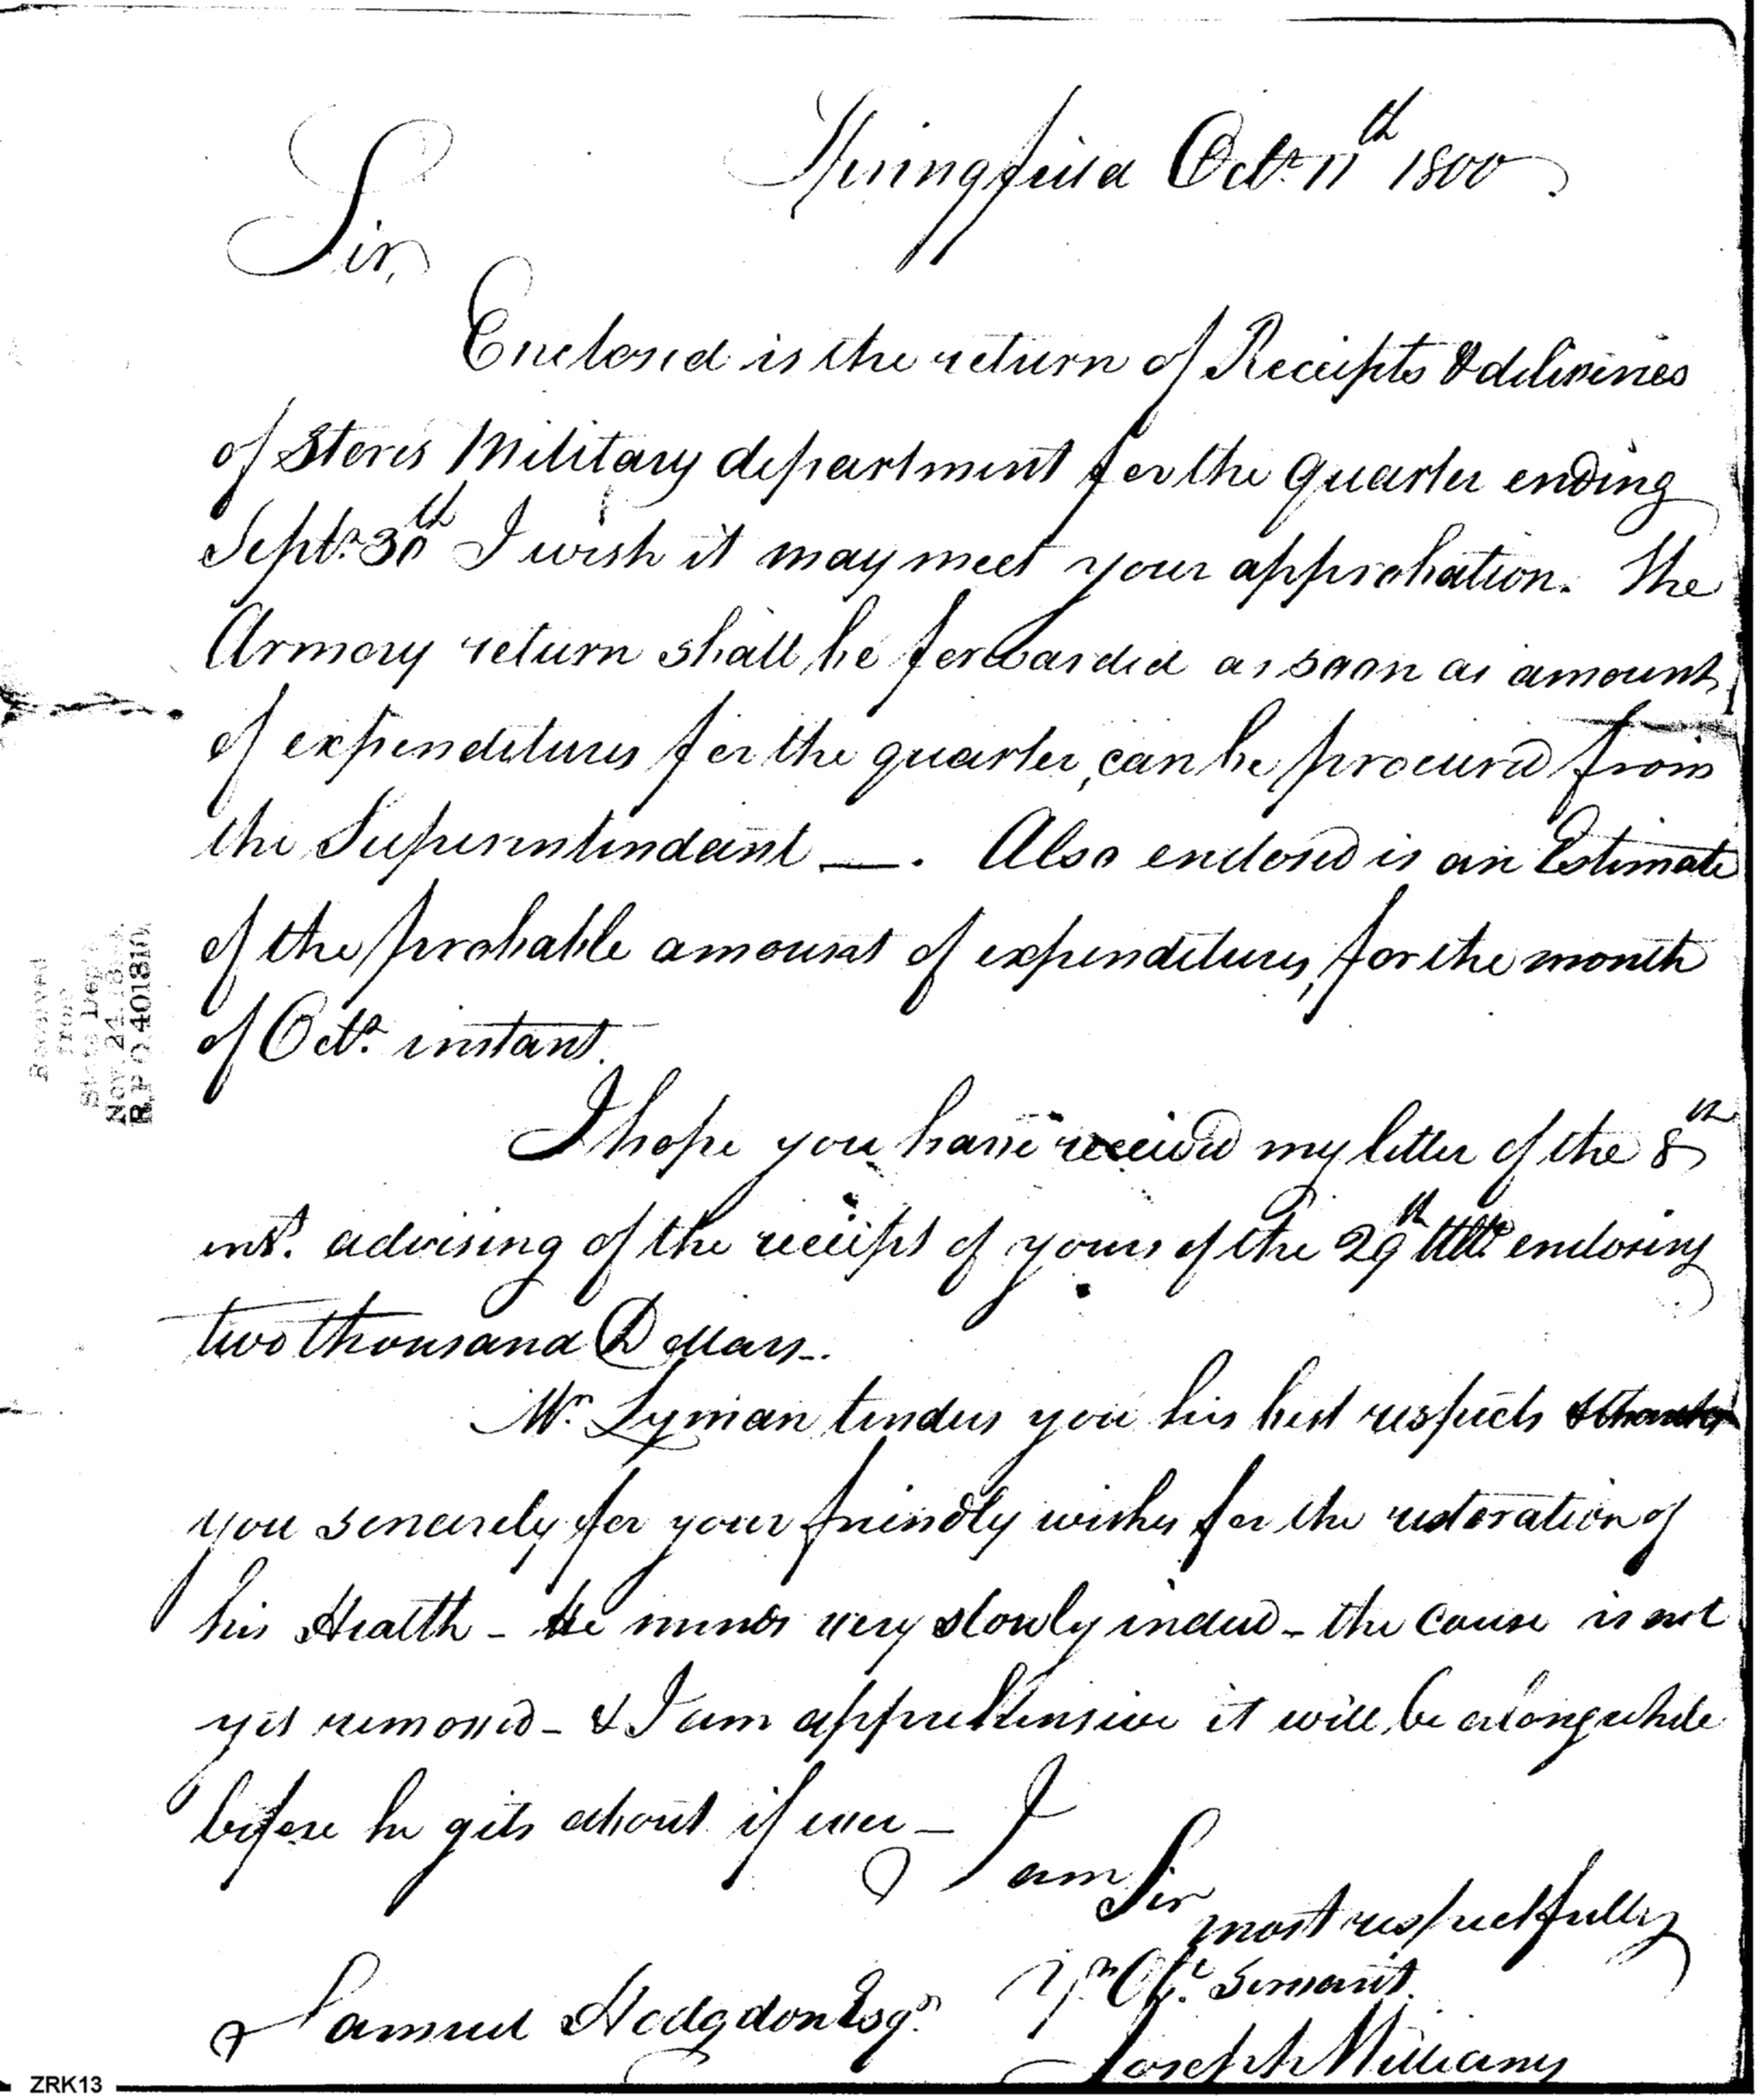 Springfield Octr. 11th 1800
Sir,
Enclosed is the return of Receipts & deliveries
of Stores Military department for the quarter ending
Septr. 30th I wish it may meet your approbation. The
Armory return shall be forwarded as soon as amount
of expenditures for the quarter, can be procured from
the Superintendant —. Also enclosed is an Estimate
of the probable amount of expenditures, for the month
of Octr. instant.
I hope you have received my letter of the 8th
inst. advising of the receipt of yours of the 29th Ulto enclosing
two thousand Dollars—.
Mr. Lyman tenders you his best respects & thanks
you sincerely for your friendly wishes for the restoration of
his Health - He mends very slowly indeed - the cause is not
yet removed - & I am apprehensive it will be a long while
before he gets about if ever —
I am Sir
most respectfully
Yr. Obt. Servant.
Samuel Hodgdon Esqr.
Joseph Williams
Received
from
State Dep't
Nov. 24, 18
R. P. O. 401810
ZRK13